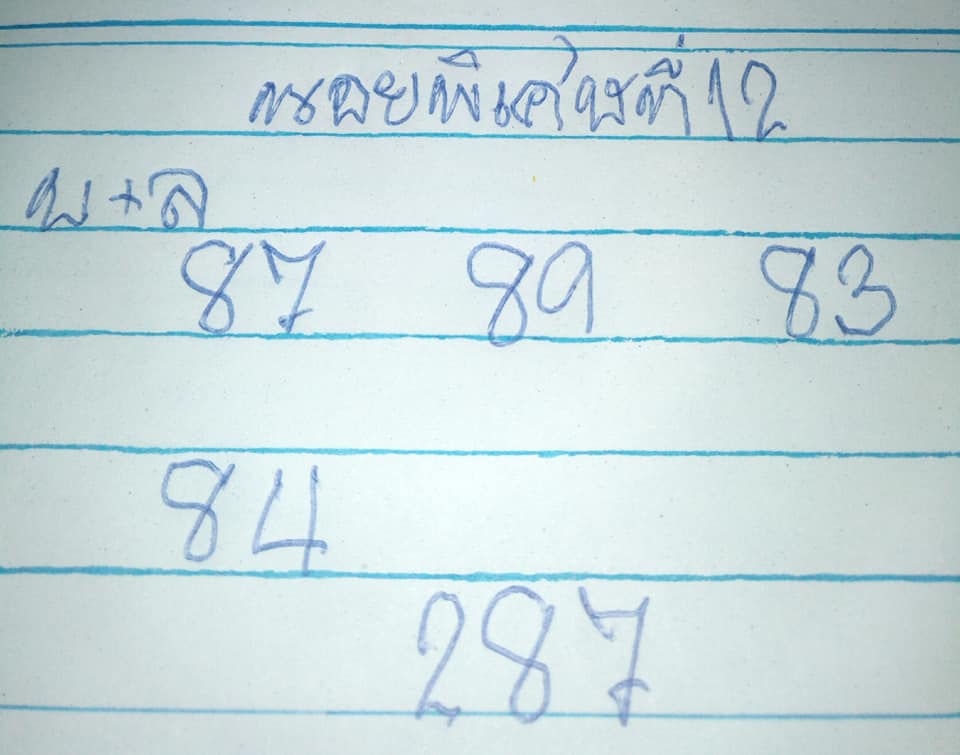 หนอยพิเศษที่12
บ+ล
87 89 83
84
287